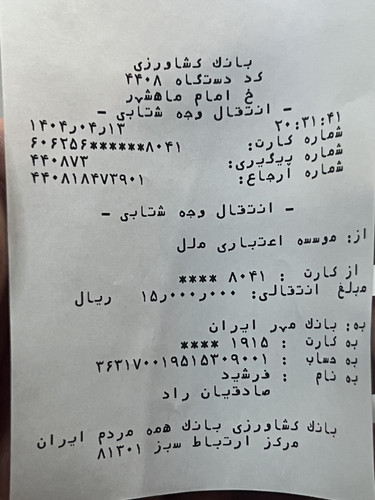 بانک کشاورزی
کد دستگاه ۴۴۰۸
خ امام ماهشهر
- انتقال وجه شتابی -
۲۰:۳۱:۴۱ ۱۴۰۴ر۰۴ر۱۳
شماره کارت: ۶۰۶۲۵۶******۸۰۴۱
شماره پیگیری: ۴۴۰۸۷۳
شماره ارجاع: ۴۴۰۸۱۸۴۷۳۹۰۱
- انتقال وجه شتابی -
از: موسسه اعتباری ملل
از کارت : ۸۰۴۱ ****
مبلغ انتقالی: ۱۵ر۰۰۰ر۰۰۰ ریال
به: بانک مهر ایران
به کارت : ۱۹۱۵ ****
به حساب : ۳۶۳۱۷۰۰۱۹۵۱۵۳۰۹۰۰۱
به نام : فرشید
صادقیان راد
بانک کشاورزی بانک همه مردم ایران
مرکز ارتباط سبز ۸۱۳۰۱